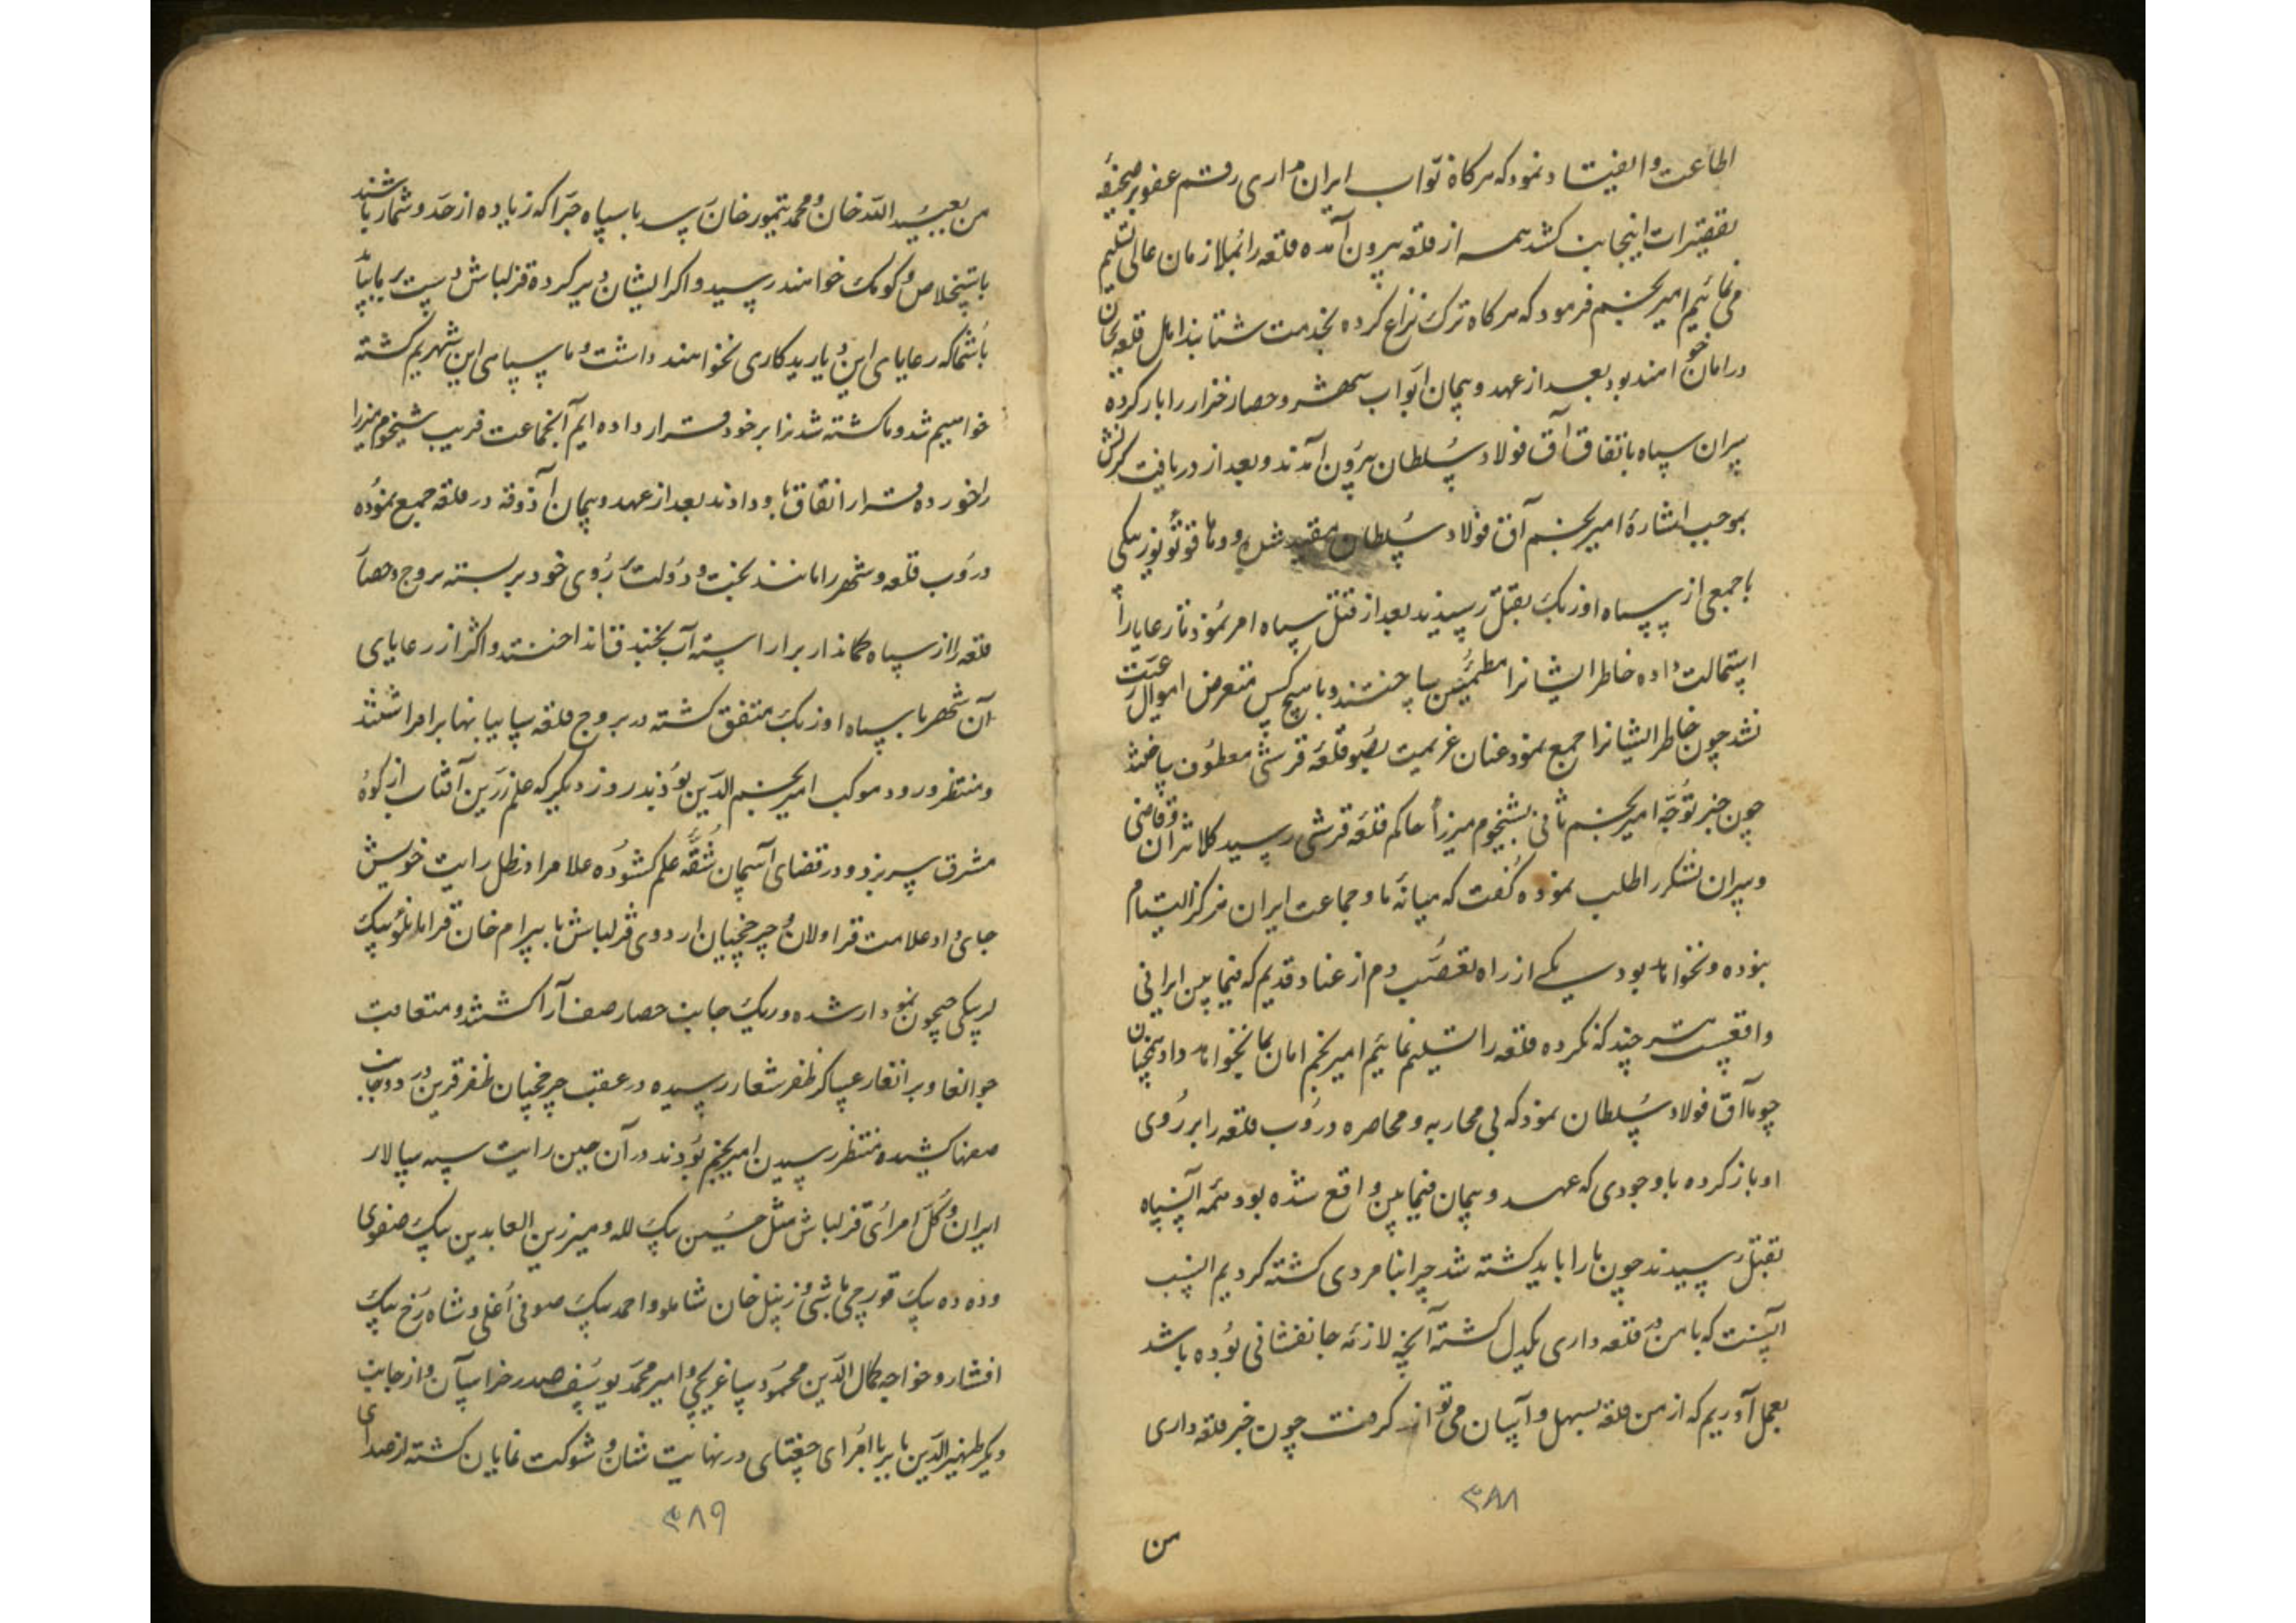 اطاعت و انقیاد نمود که هرگاه نوّاب ایران مداری رقم عفو بر صحیفهٔ
تقصیرات اینجانب کشد همه از قلعه بیرون آمده قلعه را بملازمان عالی تسلیم
می‌نمائیم امیر نجم فرمود که هرگاه ترک نزاع کرده بخدمت شتابند اهل قلعه بجان
در امان خواهند بود بعد از عهد و پیمان ابواب شهر و حصار خزار را باز کرده
سران سپاه باتفاق آق فولاد سُلطان بیرُون آمدند و بعد از دریافت کرنش
بموجب اشارهٔ امیر نجم آق فولاد سُلطان مقید شد و
با جمعی از سپاه اوزبک بقتل رسیدند بعد از قتل سپاه امر نمُود تا رعایا را
استمالت داده خاطر ایشانرا مطمئن ساختند و با هیچ کس متعرض اموال رعیّت
نشد چون خاطر ایشانرا جمع نمود عنان عزیمت بصُوب قلعه قرشی معطُوف ساخت
چون خبر توجّه امیر نجم ثانی بشیخم میرزا حاکم قلعه قرشی رسید کلانتران و قاضی
و سران لشکر را طلب نموده گفت که میانهٔ ما و جماعت ایران هرگز التیام
نبوده و نخواهد بود یکی از راه تعصُّب دوم از عناد قدیم که فیمابین ایرانی
واقعست هر چند که نکرده قلعه را تسلیم نمائیم امیر نجم امان بما نخواهد داد همچنان
چو با آق فولاد سُلطان نمود که بی محاربه و محاصره درُوب قلعه را بر رُوی
او باز کرده با وجودی که عهد و پیمان فیمابین واقع شده بود همه آن سپاه
بقتل رسیدند چون ما را باید کشته شد چرا بنامردی کشته گردیم انسب
آنست که با من در قلعه داری یکدل گشته آنچه لازمه جانفشانی بوُده باشد
بعمل آوریم که از من قلعه بسهل و آسان می‌تواند گرفت چون خبر قلعه داری
۳۸۸
من
من بعبیدالله خان و محمد تیمور خان رسد با سپاه جرّار که زیاده از حدّ و شمار باشند
باستخلاص و کومک خواهند رسید و اگر ایشان دیر کرده قزلباش دست یابد
با شما که رعایای این دیارید کاری نخواهند داشت و ما سپاهی این شهریم کشته
خواهیم شد و ما کشته شدنرا بر خود قرار داده‌ایم آنجماعت فریب شیخم میرزا
را خورده قرار اتفاق باو دادند بعد از عهد و پیمان آذوقه در قلعه جمیع نمُوده
درُوب قلعه و شهر را مانند بخت و دولت بر رُوی خود بر بسته بروج و حصار
قلعه را از سپاه کماندار برآراسته آب بخندق انداختند و اکثر از رعایای
آن شهر با سپاه اوزبک متفق گشته در بروج قلعه سایبانها برافراشتند
و منتظر ورود موکب امیر نجم الدّین بُودند روز دیگر که علم زرّین آفتاب از کوه
مشرق سر زد و در قضای آسمان شُقّه علم گشوُده علامرا در ظل رایت خویش
جای داد علامت قراولان و چرخچیان اردوی قزلباش با بیرام خان قرامانلو بیک
لربیکی جیحون نمودار شده در یک جانب حصار صف آرا گشتند و متعاقب
جوانغار و برانغار عساکر ظفر شعار رسیده در عقب چرخچیان ظفر قرین در دو جانب
صفها کشیده منتظر رسیدن امیر نجم بُودند در آن حین رایت سپه سالار
ایران و کُل امرای قزلباش مثل حسین بیک لله و میر زین العابدین بیک صفوی
و ده ده بیک قورچی باشی و زینل خان شاملو و احمد بیک صوفی اُغلی و شاه رُخ بیک
افشار و خواجه کمال الدّین محمُود ساغرچی و امیر محمّد یوسُف صدر خراسان و از جانب
دیگر ظهیرالدّین بابر با امُرای چغتای در نهایت شان و شوکت نمایان گشته از صدای
۳۸۹